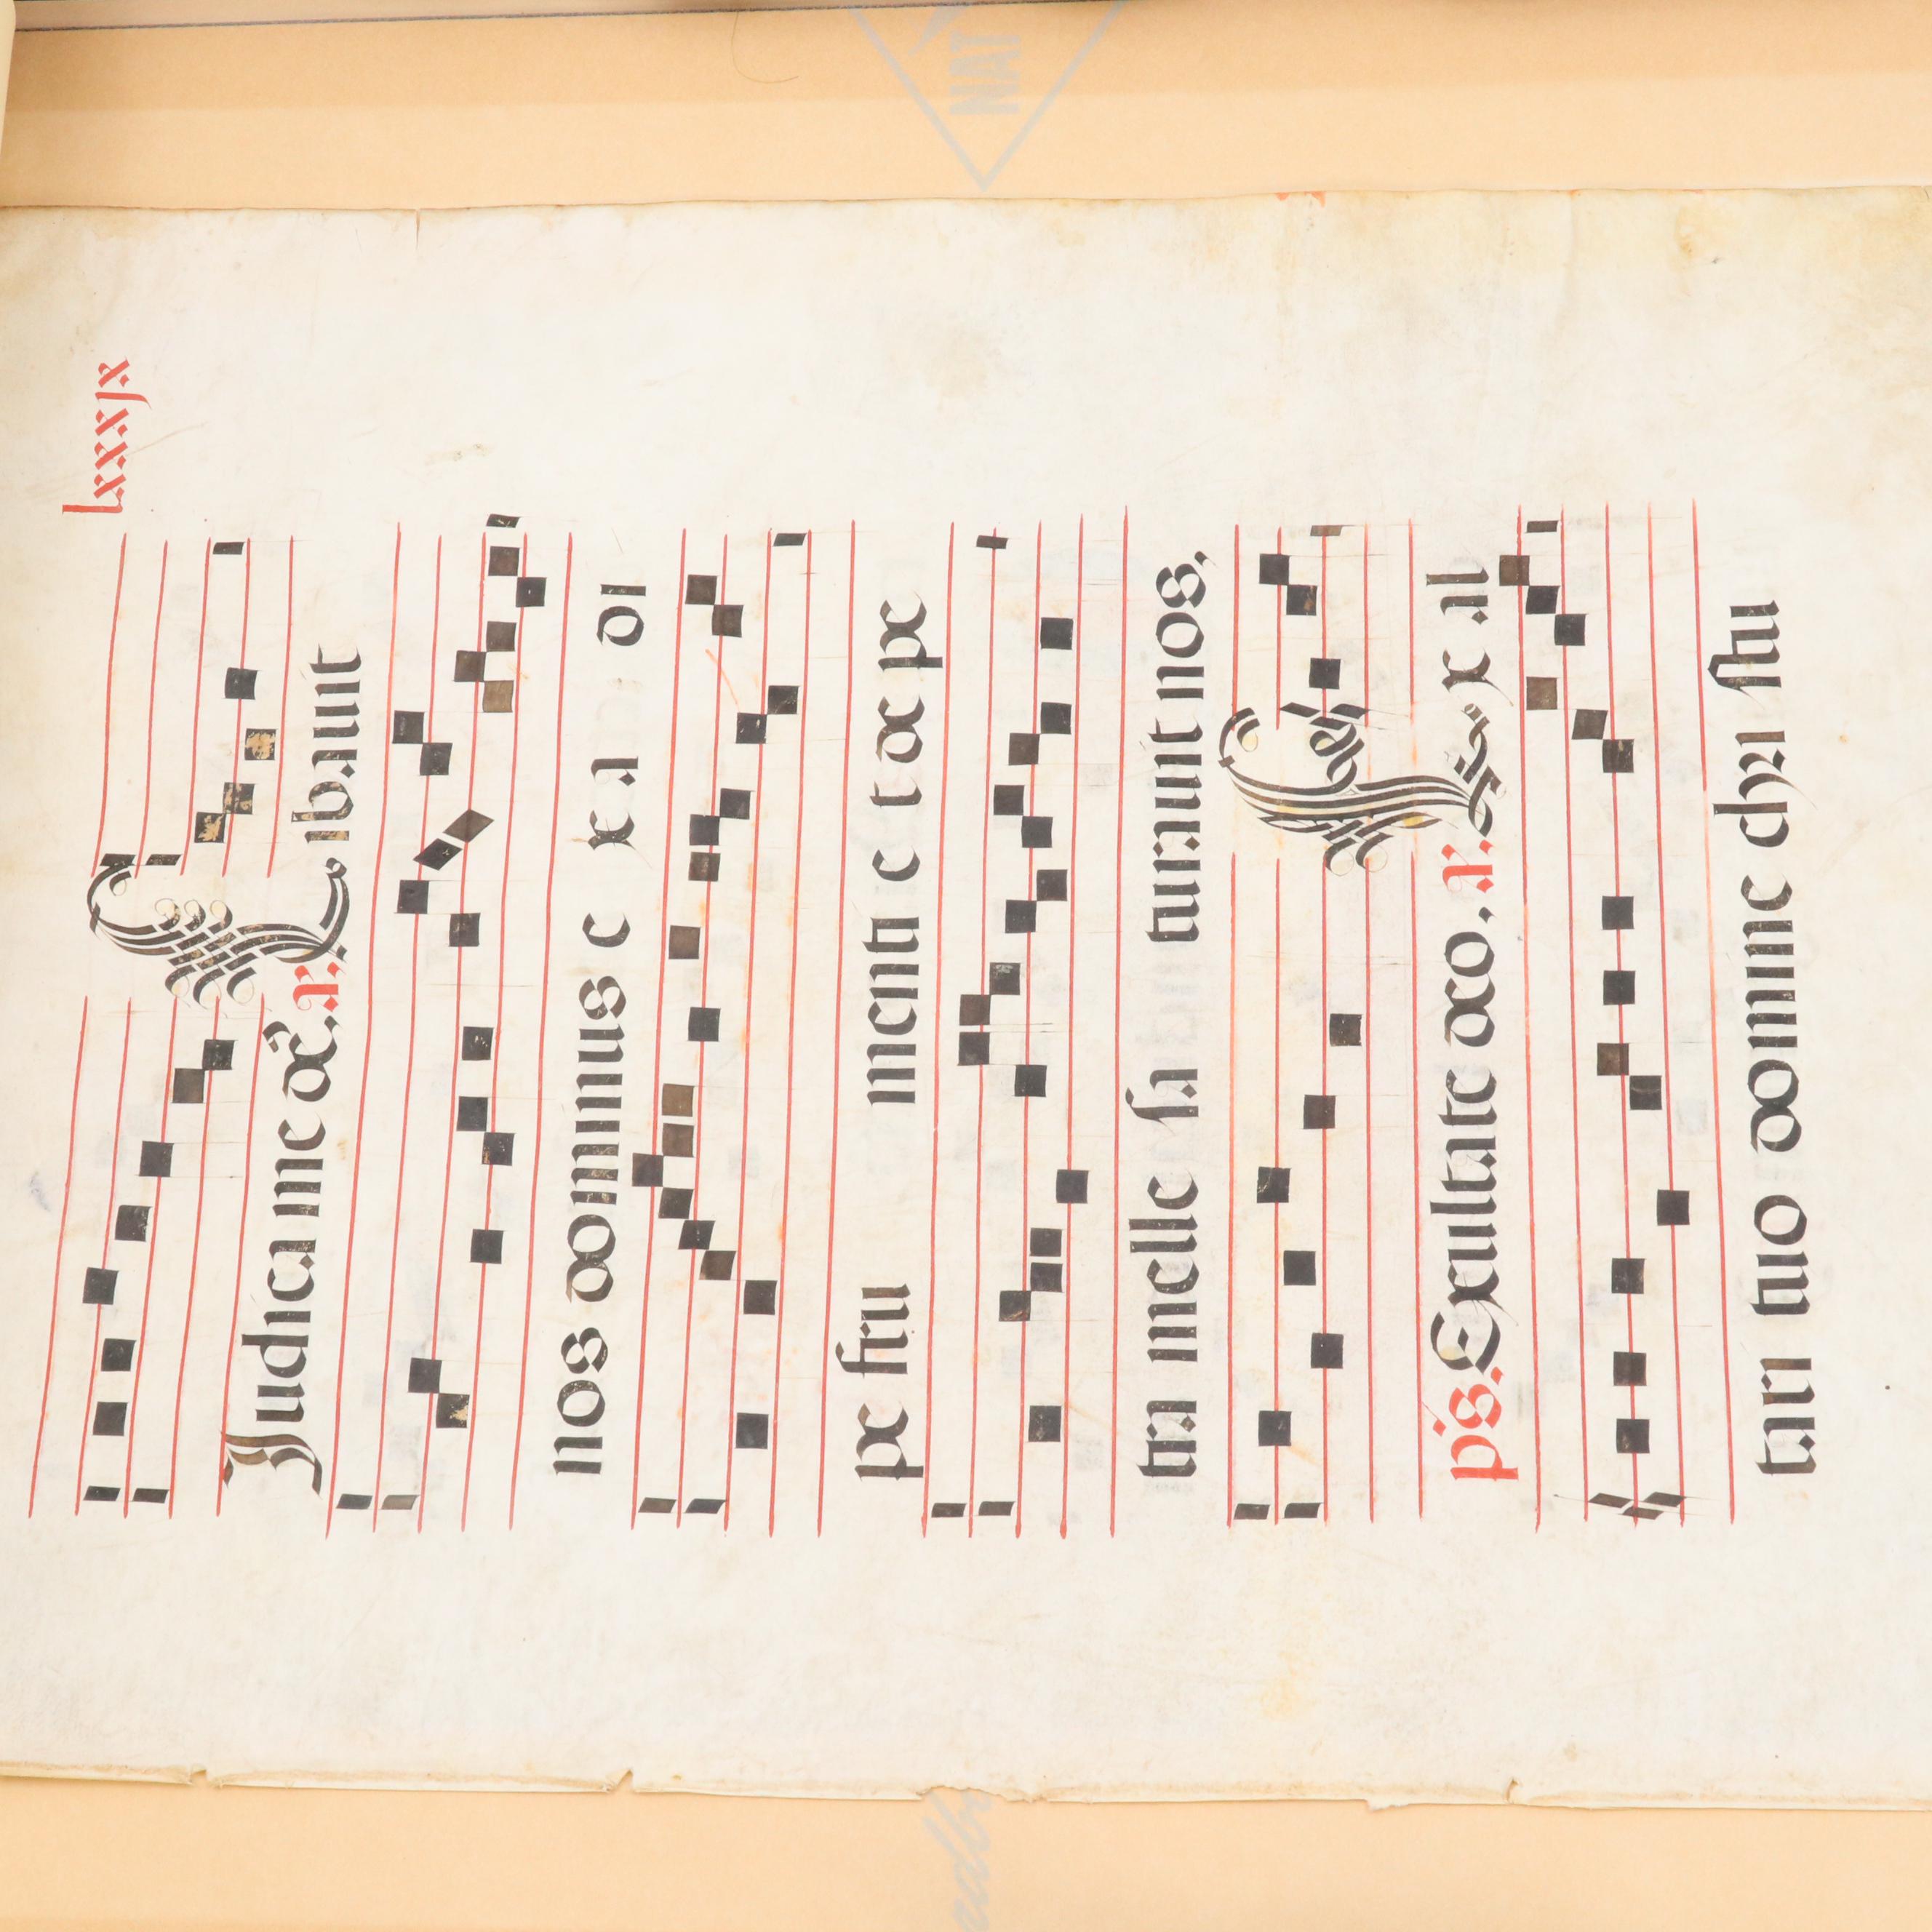 lxxxjx
Judica me deꝰ. a. Cibauit
nos dominus e x a di
pe fru menti e t de pe
tra melle sa turauit nos.
ps. Exultate deo. a. E x al
tari tuo domine chri stu